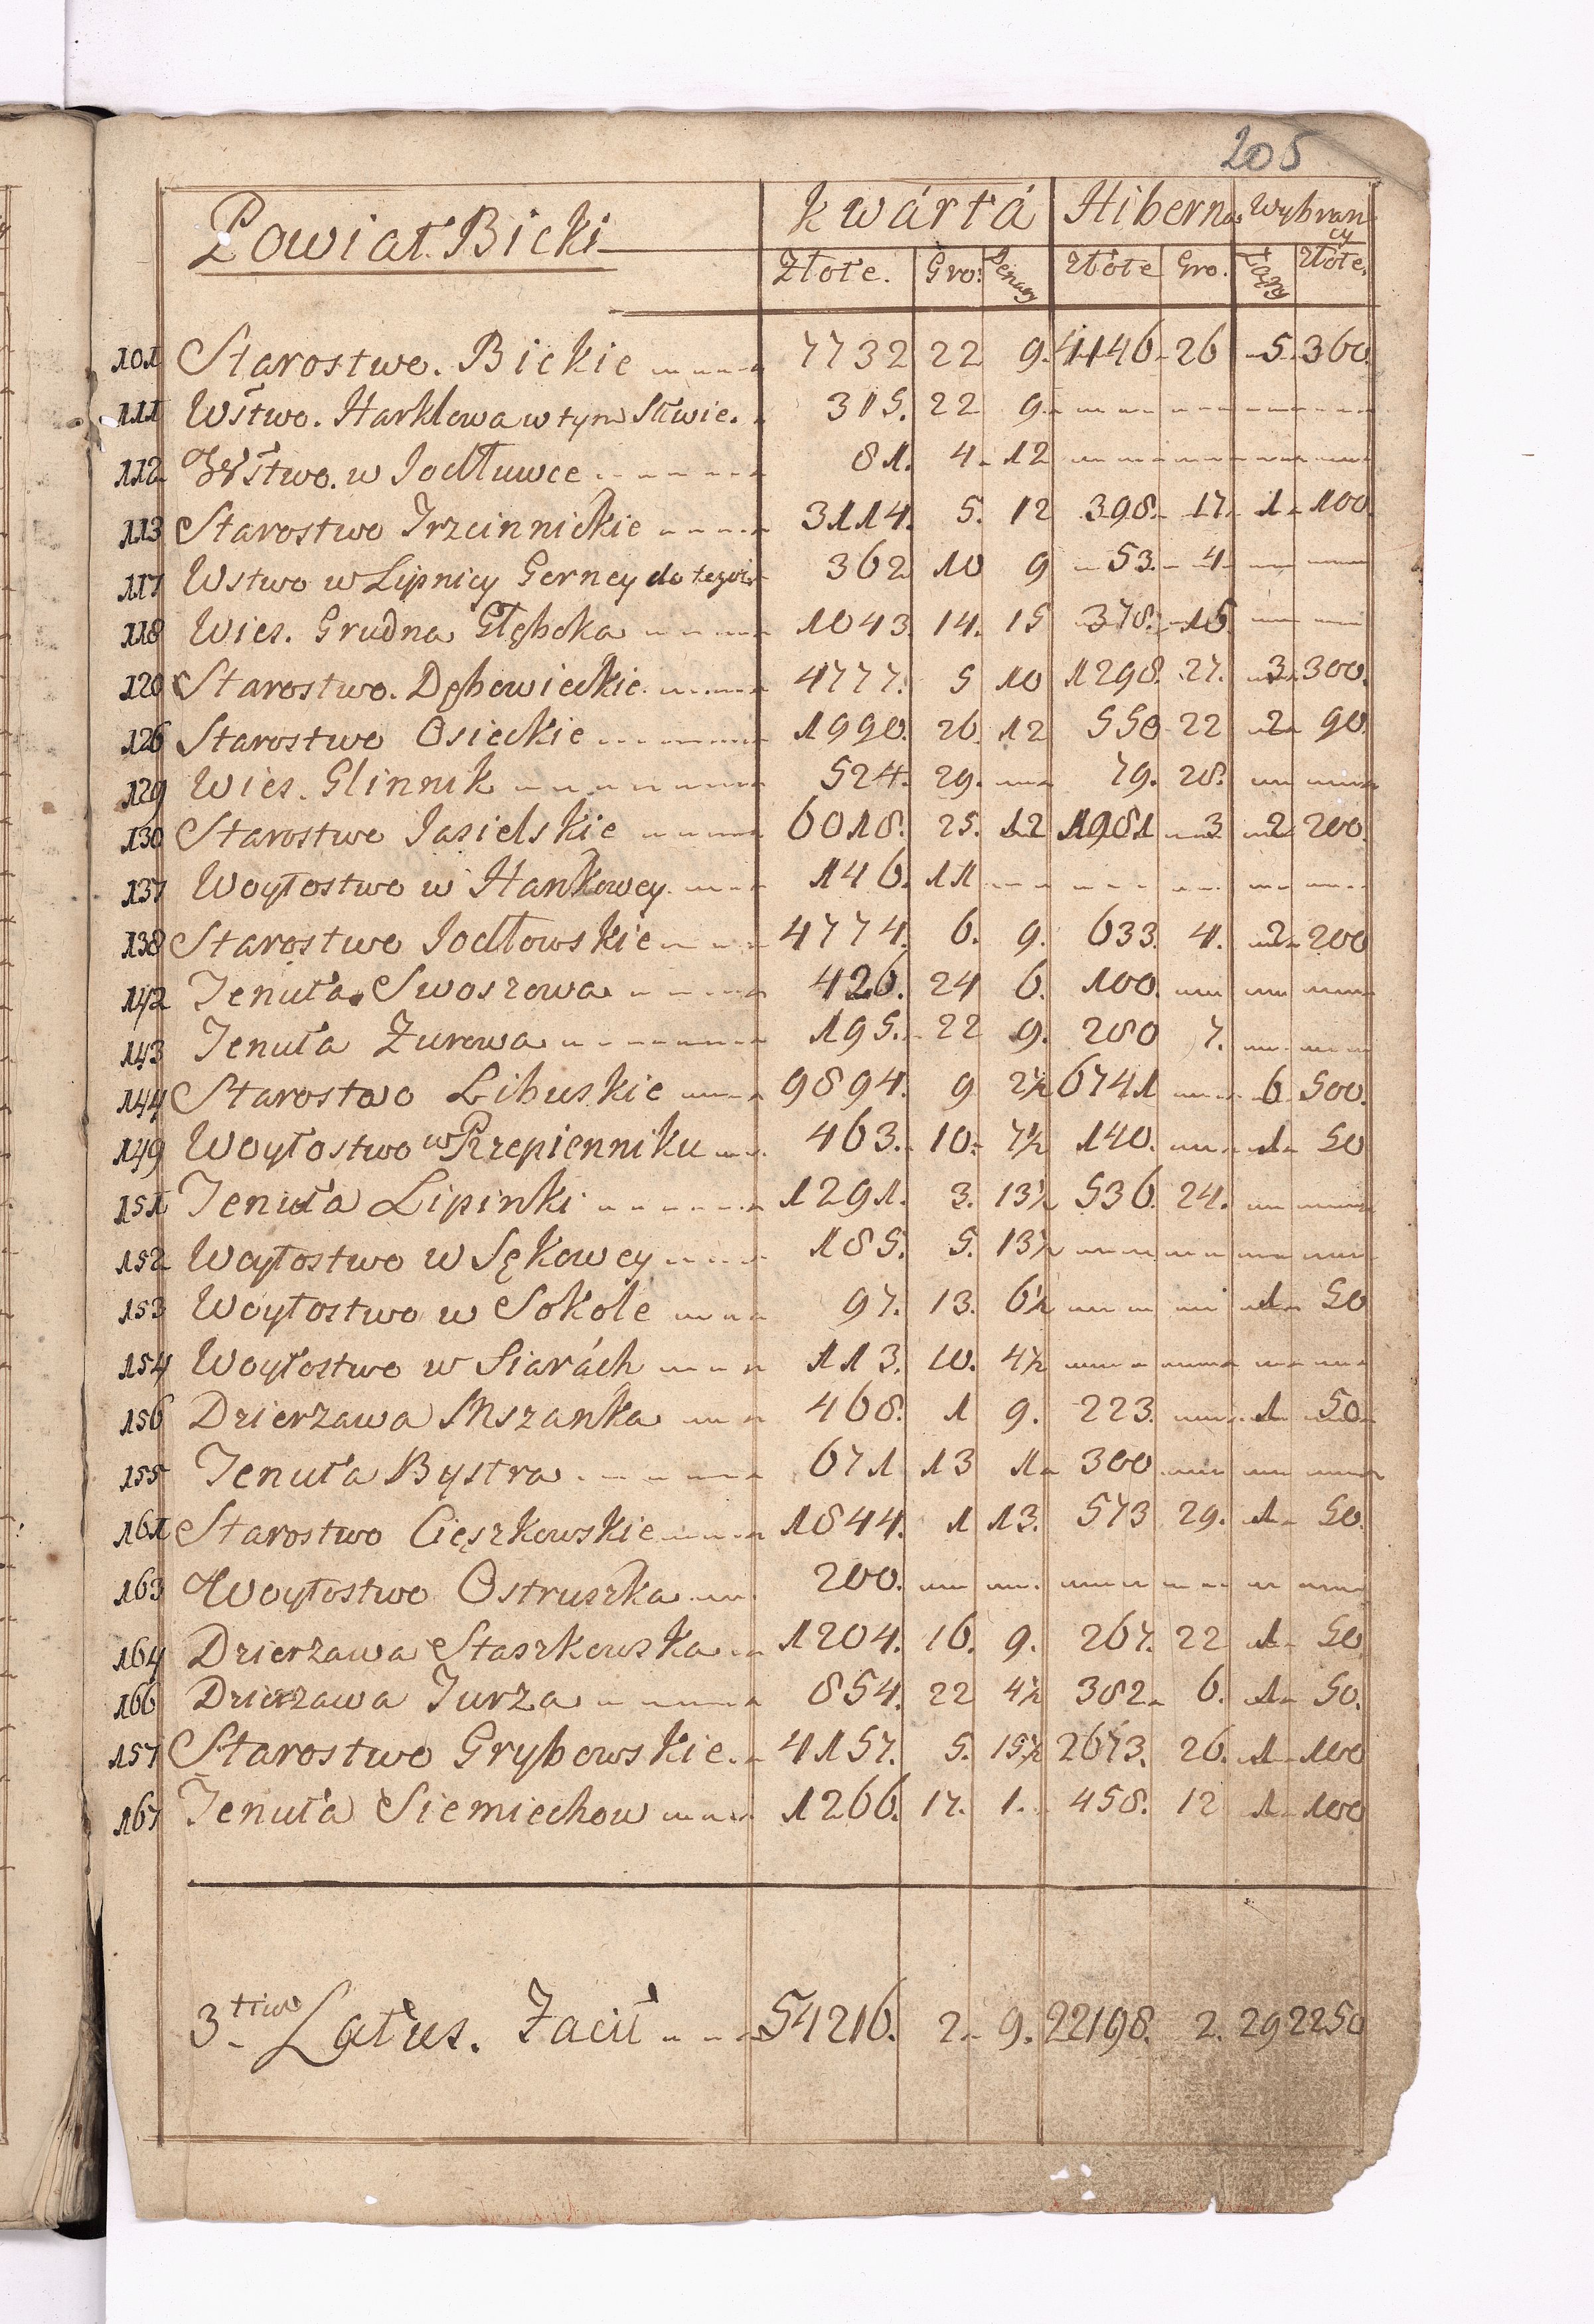 205
Powiat Bicki kwártá Hiberna Wybrancy
Złote. Gro: Denary Złote Gro. Łany Złote.
101 Starostwo. Bickie 7732 22 9. 4146. 26 5. 360.
111 Wstwo. Harklowa w tym Stwie. 315. 22 9.
112 Wstwo. w Jodłuwce 81. 4. 12
113 Starostwo Trzcinnickie 3114. 5. 12 398. 17. 1. 100.
117 Wstwo w Lipnicy Gorney do tegoż 362 10 9 53. 4.
118 Wies. Grudna Głęboka 1043. 14. 15 378. 15.
120 Starostwo. Dębowieckie 4777. 5 10 1298. 27. 3. 300.
126 Starostwo Osieckie 1990. 26. 12 550 22 2 90.
129 Wies. Glinnik 524. 29. 79. 28.
130 Starostwo Jasielskie 6018. 25. 12 1981 3 2 200.
137 Woytostwo w Hankowey 146. 11
138 Starostwo Jodłowskie 4774. 6. 9. 633. 4. 2 200
142 Tenuta Swoszowa 426. 24 6. 100.
143 Tenuta Zurowa 195. 22 9. 280 7.
144 Starostwo Libuskie 9894. 9 2½ 6741 6 500.
149 Woytostwo w Rzepienniku 463. 10. 7½ 140. 1 50
151 Tenuta Lipinki 1291. 3. 13½ 536. 24.
152 Woytostwo w Sękowey 185. 5. 13½
153 Woytostwo w Sokole 97. 13. 6½ 1 50
154 Woytostwo w Siarách 113. 10. 4½
156 Dzierzawa Mszanka 468. 1 9. 223. 1 50
155 Tenuta Bystra 671 13 1 300
161 Starostwo Cięszkowskie 1844. 1 13. 573 29. 1 50.
163 Woytostwo Ostruszka 200.
164 Dzierzawa Staszkowska 1204. 16. 9. 267. 22 1 50.
166 Dzierzawa Turza 854. 22 4½ 382. 6. 1 50.
157 Starostwo Grybowskie 4157. 5. 15½ 2673. 26. 1 100
167 Tenuta Siemiechow 1266. 17. 1. 458. 12 1 100
3tium Latus. Facit 54216. 2. 9. 22198. 2. 29 2250